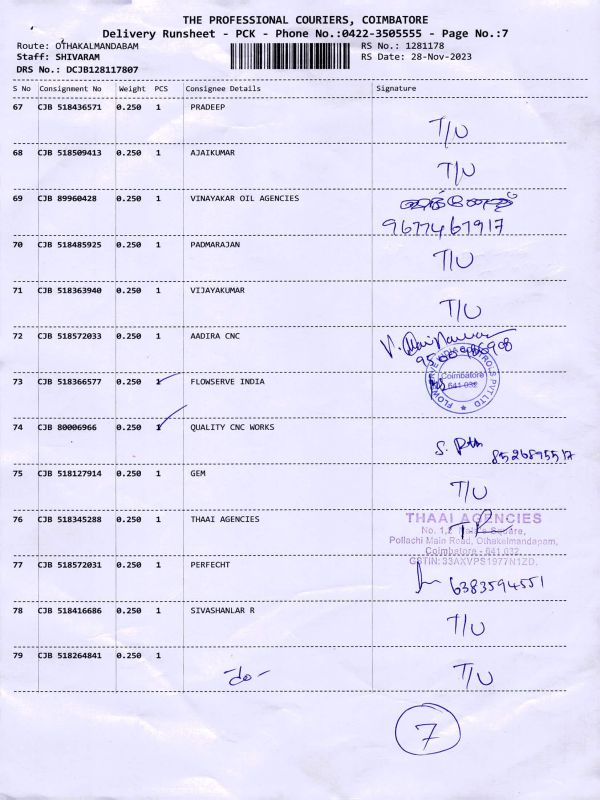 THE PROFESSIONAL COURIERS, COIMBATORE
Delivery Runsheet - PCK - Phone No.:0422-3505555 - Page No.:7
Route: OTHAKALMANDABAM RS No.: 1281178
Staff: SHIVARAM RS Date: 28-Nov-2023
DRS No.: DCJB128117807
S No Consignment No Weight PCS Consignee Details Signature
67 CJB 518436571 0.250 1 PRADEEP
T/U
68 CJB 518509413 0.250 1 AJAIKUMAR
T/U
69 CJB 89960428 0.250 1 VINAYAKAR OIL AGENCIES
9677467917
70 CJB 518485925 0.250 1 PADMARAJAN
T/U
71 CJB 518363940 0.250 1 VIJAYAKUMAR
T/U
72 CJB 518572033 0.250 1 AADIRA CNC
73 CJB 518366577 0.250 1 FLOWSERVE INDIA
Coimbatore
641 032
74 CJB 80006966 0.250 1 QUALITY CNC WORKS
8526895517
75 CJB 518127914 0.250 1 GEM
T/U
76 CJB 518345288 0.250 1 THAAI AGENCIES
THAAI AGENCIES
Pollachi Main Road, Othakelmandapam,
Coimbatore - 641 032.
GSTIN: 33AXVPS1977N1ZD.
77 CJB 518572031 0.250 1 PERFECHT
6383594551
78 CJB 518416686 0.250 1 SIVASHANLAR R
T/U
79 CJB 518264841 0.250 1
-do- T/U
7